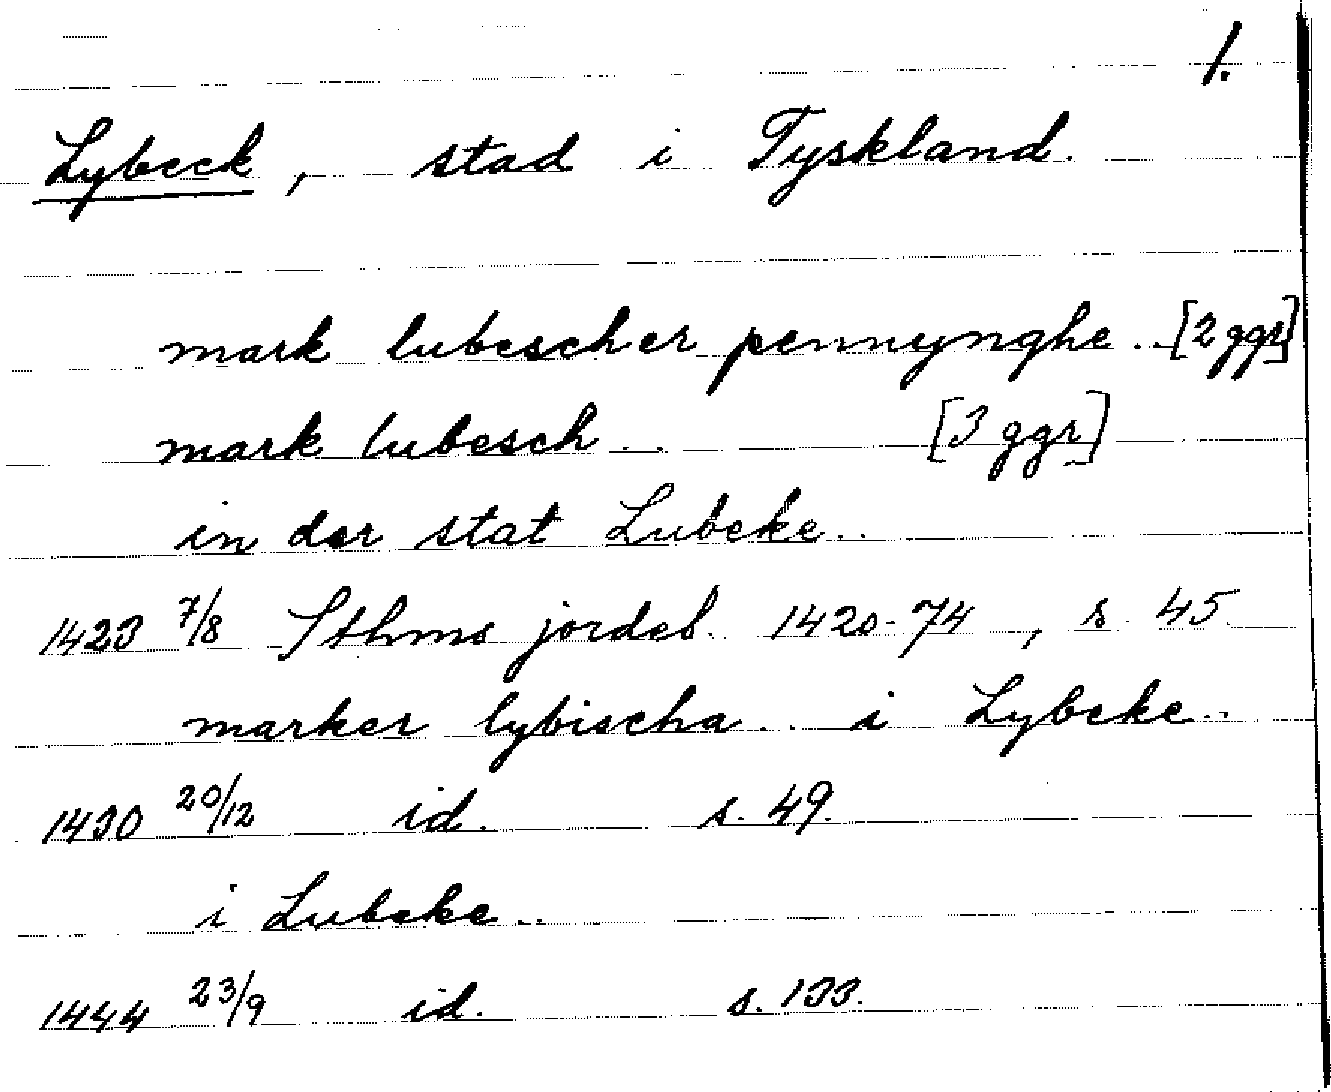 1.
Lybeck, stad i Tyskland.
mark lubescher pennynghe.. [2 ggr]
mark lubesch .. [3 ggr]
in der stat Lubeke..
1423 7/8 Sthms jordeb. 1420-74, s. 45
marker lybischa .. i Lybeke..
1430 20/12 id. s. 49.
i Lubeke..
1444 23/9 id. s. 133.